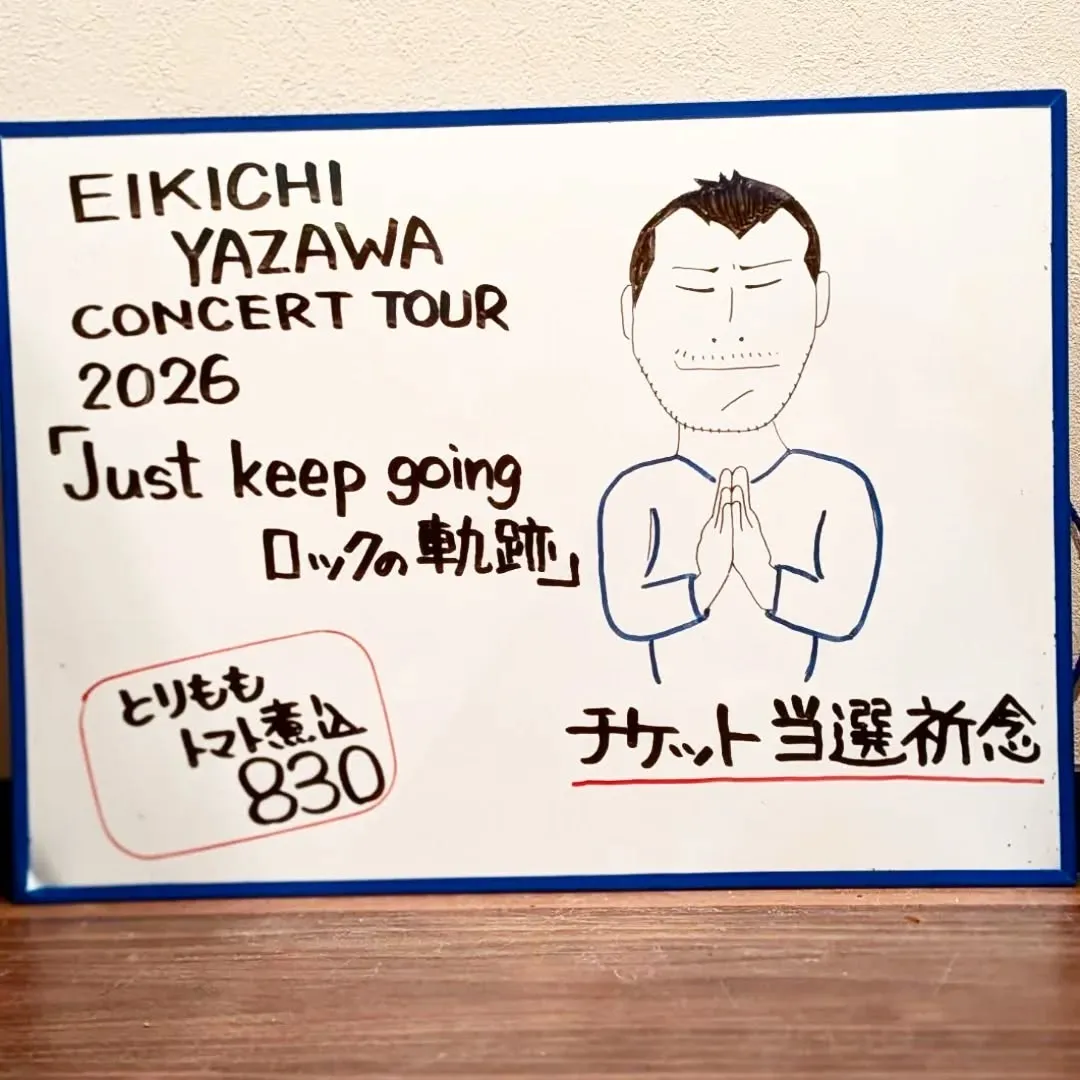 EIKICHI
YAZAWA
CONCERT TOUR
2026
「Just keep going
ロックの軌跡」
とりもも
トマト煮込
830
チケット当選祈念